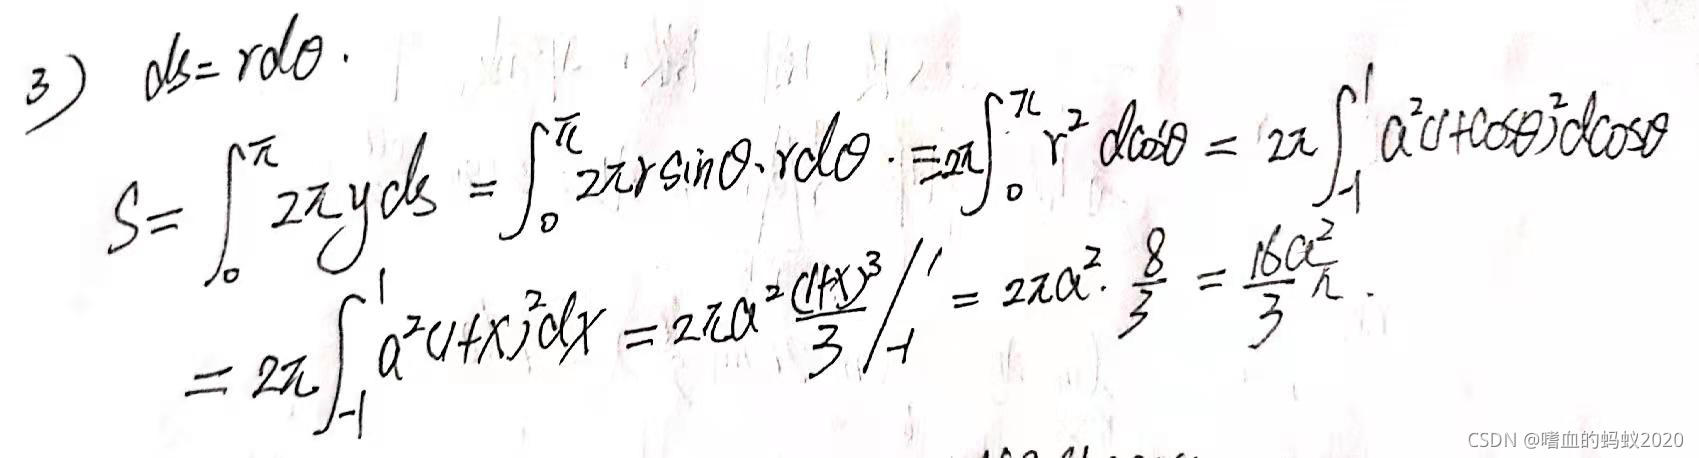 3) ds=rdθ.
S=∫₀^π 2πyds = ∫₀^π 2πrsinθ·rdθ. =2π∫₀^π r² dcosθ = 2π∫₋₁^1 a²(1+cosθ)²dcosθ
= 2π∫₋₁^1 a²(1+x)²dx = 2πa² (1+x)³/3 /₋₁^1 = 2πa²· 8/3 = 16a²/3 π.
CSDN @嗜血的蚂蚁2020